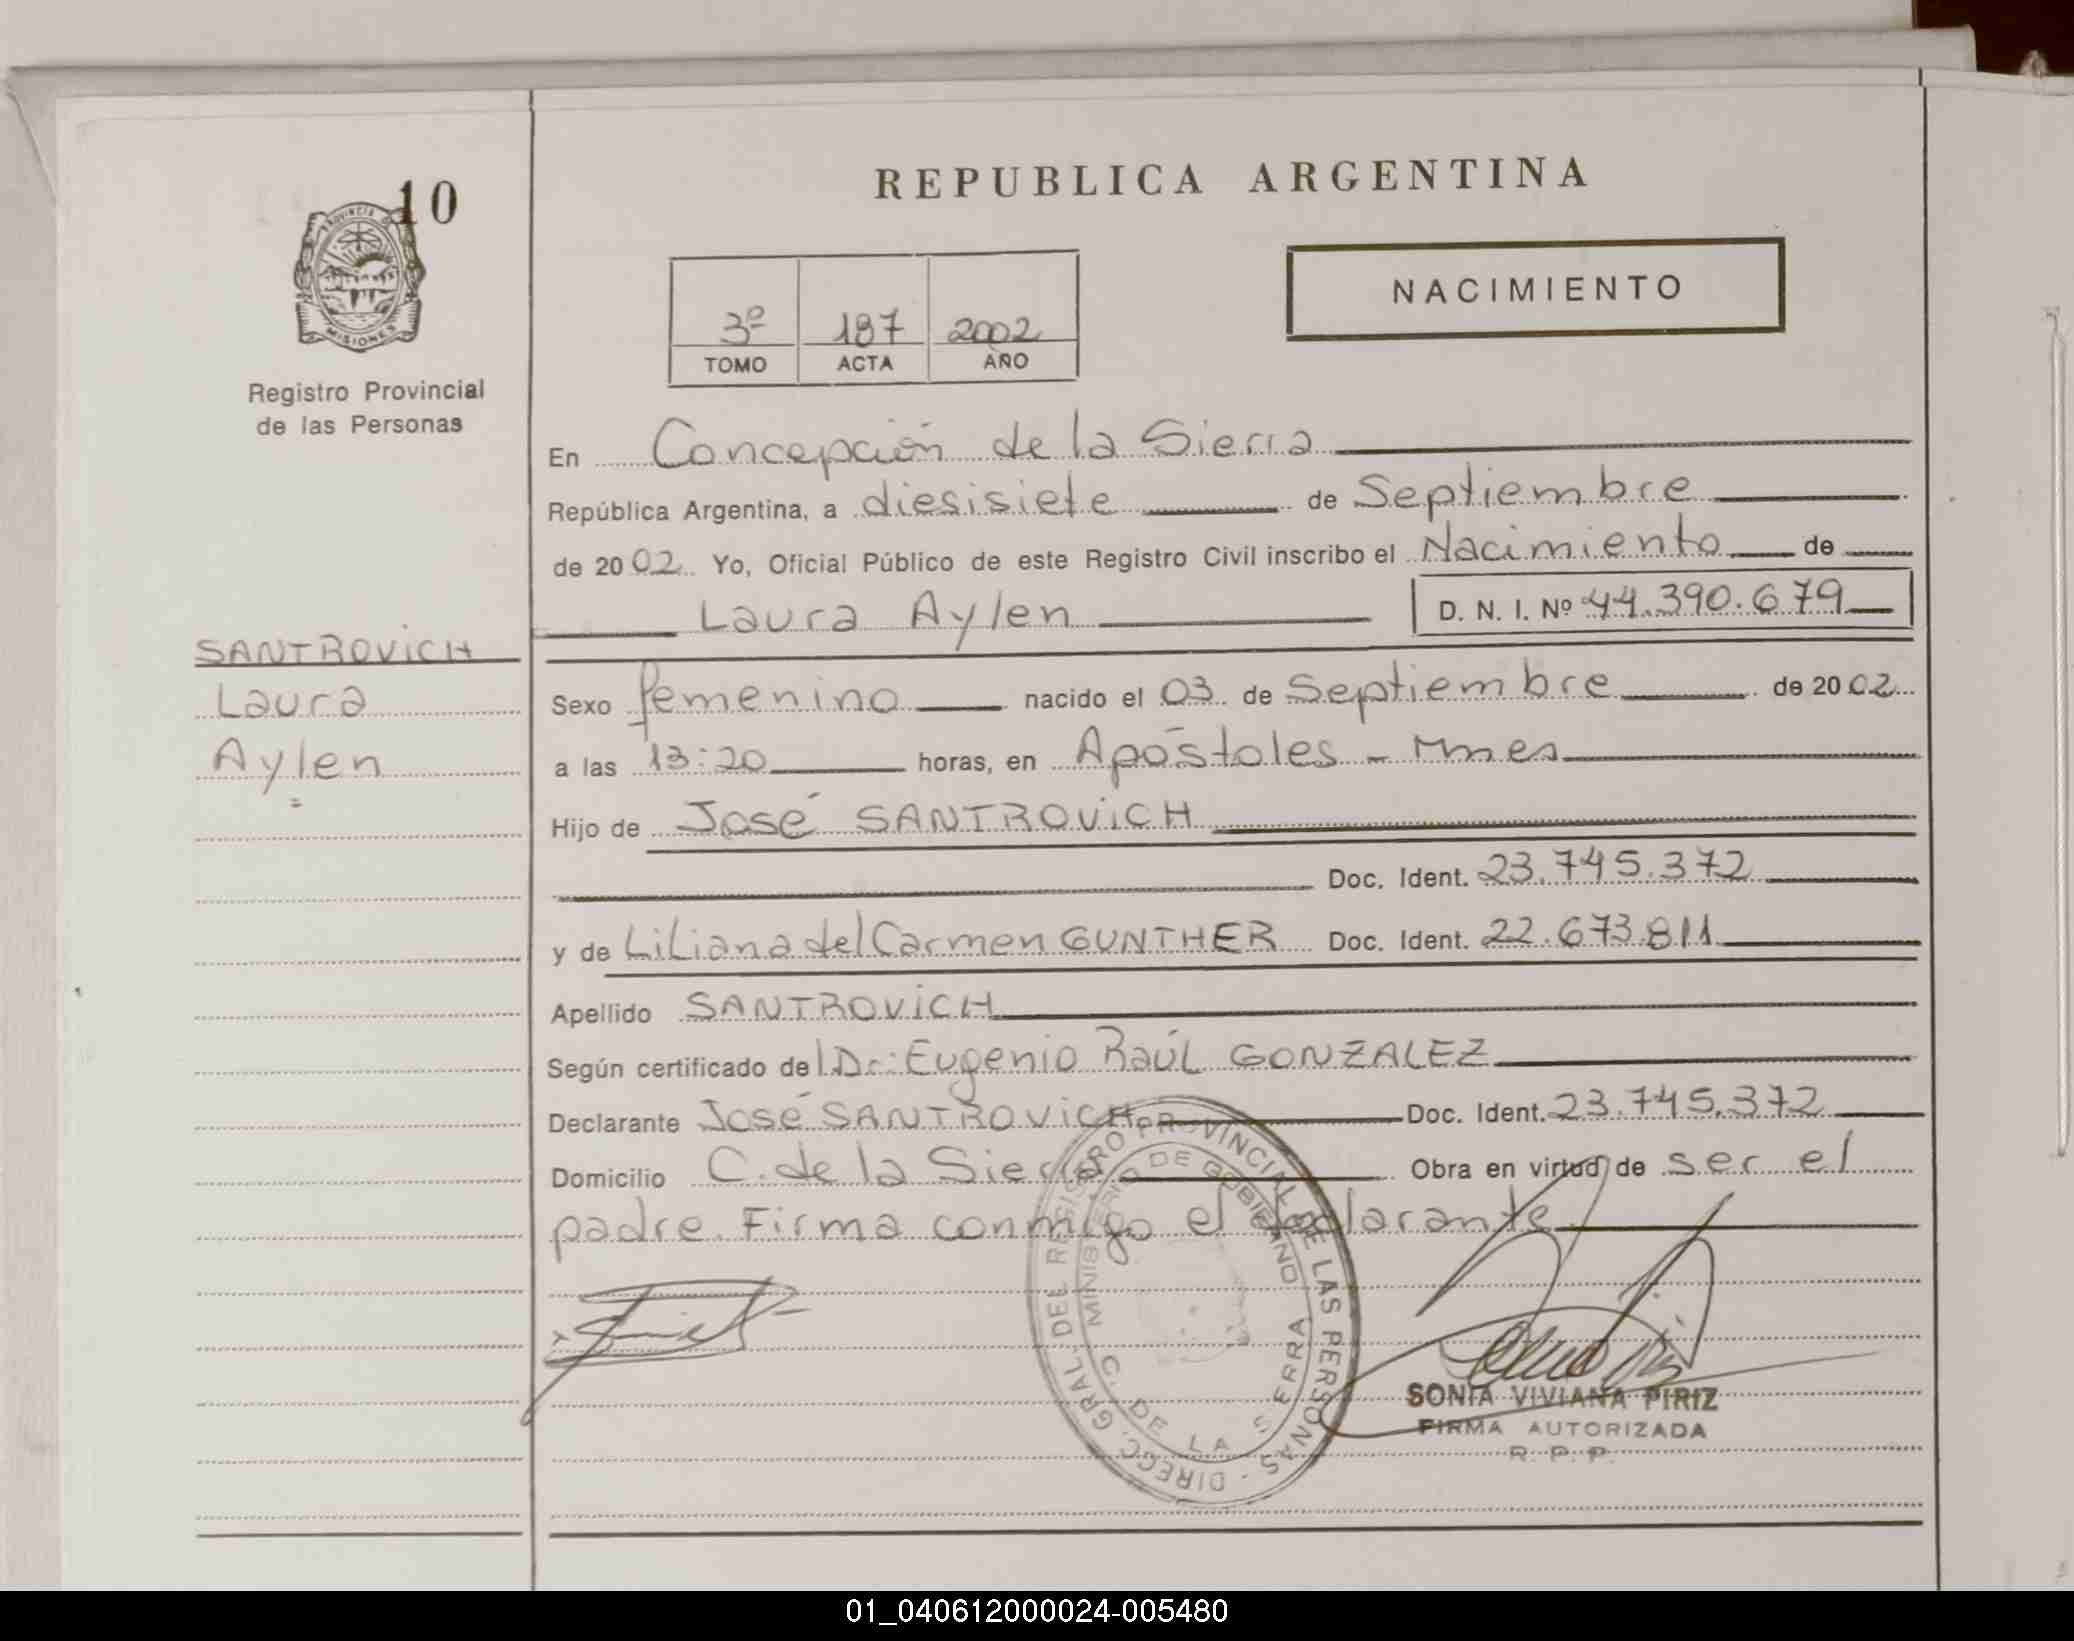 10
PROVINCIA D
MISIONES
Registro Provincial
de las Personas
REPUBLICA ARGENTINA
NACIMIENTO
3º 187 2002
TOMO ACTA AÑO
En Concepción de la Sierra
República Argentina, a diesisiete de Septiembre
de 2002 Yo, Oficial Público de este Registro Civil inscribo el Nacimiento de
Laura Aylen D. N. I. Nº 44.390.679
SANTROVICH
Laura
Aylen
Sexo femenino nacido el 03 de Septiembre de 2002
a las 13:20 horas, en Apóstoles - Mnes
Hijo de José SANTROVICH
Doc. Ident. 23.745.372
y de Liliana del Carmen GUNTHER Doc. Ident. 22.673.811
Apellido SANTROVICH
Según certificado del Dr: Eugenio Raúl GONZALEZ
Declarante José SANTROVICH Doc. Ident. 23.745.372
Domicilio C. de la Sierra Obra en virtud de ser el
padre. Firma conmigo el declarante
DIRECC. GRAL. DEL REGISTRO PROVINCIAL DE LAS PERSONAS -
MINISTERIO DE GOBIERNO
C. DE LA SIERRA
SONIA VIVIANA PIRIZ
FIRMA AUTORIZADA
R. P. P.
01_040612000024-005480